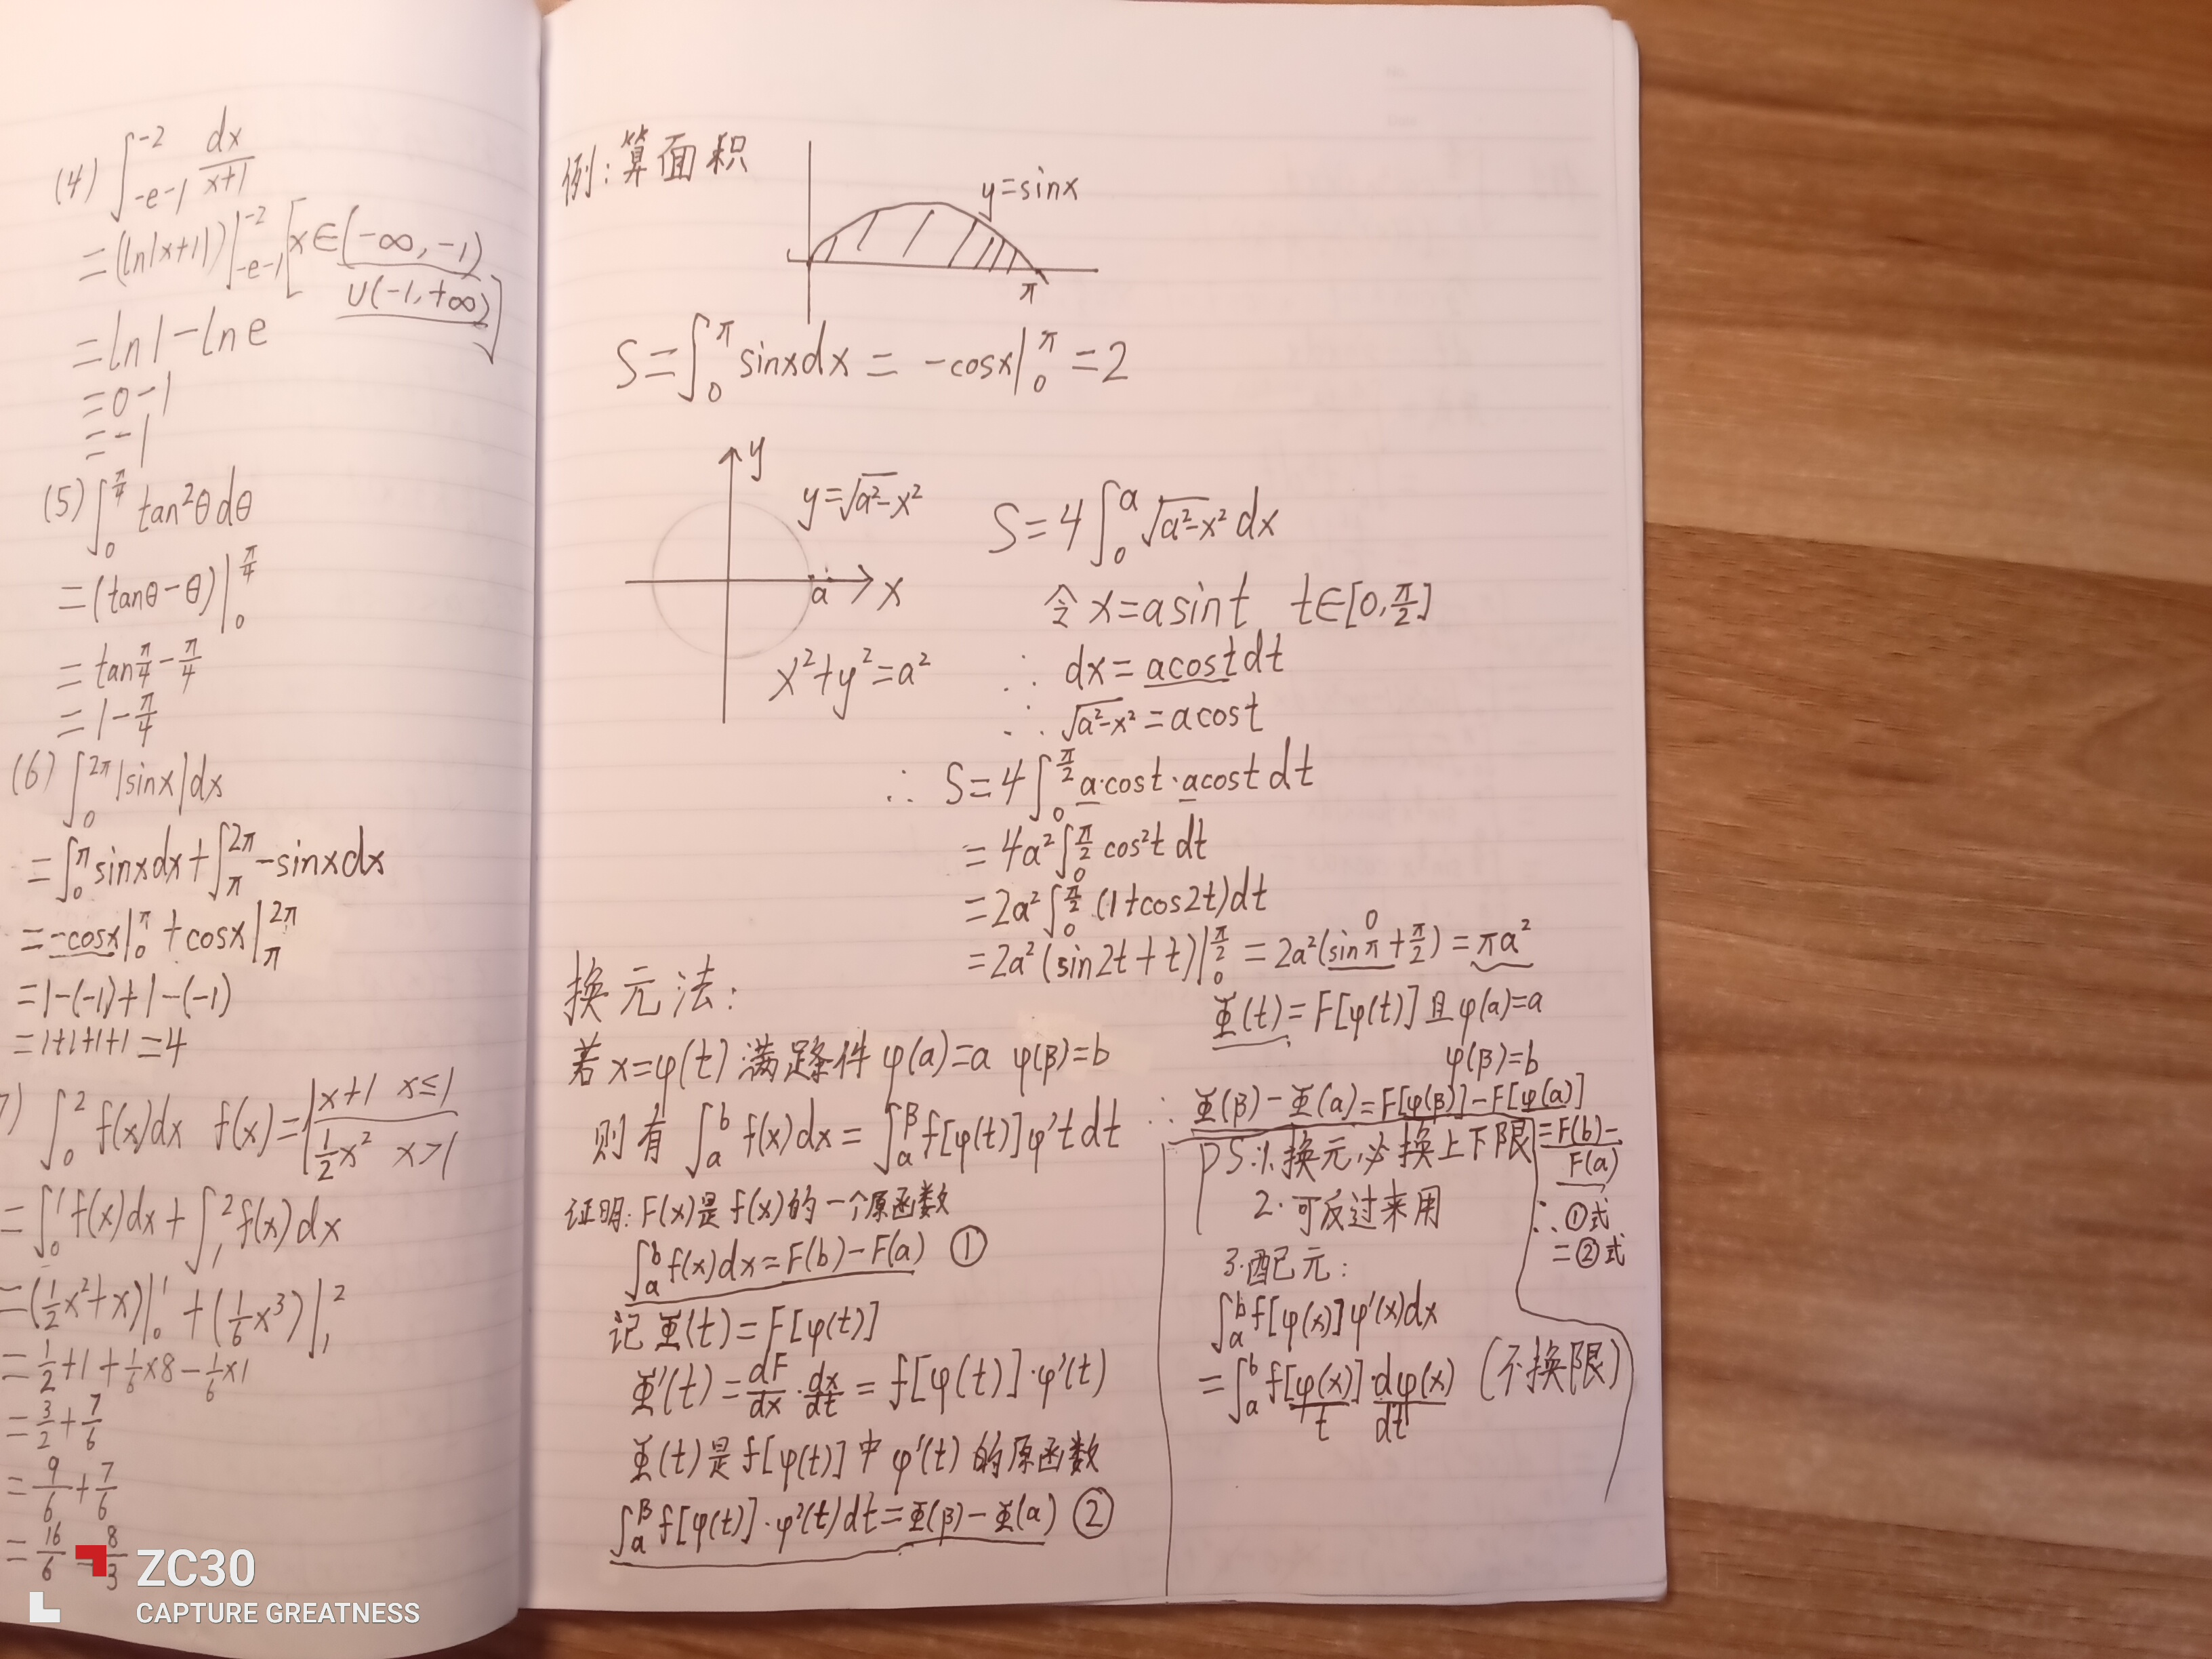 (4) ∫_{-e-1}^{-2} dx/(x+1)
=(ln|x+1|)|_{-e-1}^{-2} [x∈(-∞,-1)
∪(-1,+∞)]
=ln1-lne
=0-1
=-1
(5) ∫_0^{π/4} tan²θdθ
=(tanθ-θ)|_0^{π/4}
=tanπ/4-π/4
=1-π/4
(6) ∫_0^{2π}|sinx|dx
=∫_0^π sinxdx+∫_π^{2π}-sinxdx
=-cosx|_0^π+cosx|_π^{2π}
=1-(-1)+1-(-1)
=1+1+1+1=4
7) ∫_0^2 f(x)dx f(x)={x+1 x≤1
1/2x² x>1
=∫_0^1 f(x)dx+∫_1^2 f(x)dx
=(1/2x²+x)|_0^1+(1/6x³)|_1^2
=1/2+1+1/6×8-1/6×1
=3/2+7/6
=9/6+7/6
=16/6=8/3
例:算面积
y=sinx
π
S=∫_0^π sinxdx=-cosx|_0^π=2
y
y=√a²-x²
a x
x²+y²=a²
S=4∫_0^a √a²-x² dx
令x=asint t∈[0,π/2]
∴ dx=acostdt
∴ √a²-x²=acost
∴ S=4∫_0^{π/2} a·cost·acostdt
=4a²∫_0^{π/2} cos²t dt
=2a²∫_0^{π/2}(1+cos2t)dt
=2a²(sin2t+t)|_0^{π/2}=2a²(sinπ+π/2)=πa²
0
换元法:
若x=φ(t)满足条件φ(a)=a φ(β)=b
则有∫_a^b f(x)dx=∫_a^β f[φ(t)]φ't dt
证明:F(x)是f(x)的一个原函数
∫_a^b f(x)dx=F(b)-F(a) ①
记Φ(t)=F[φ(t)]
Φ'(t)=dF/dx·dx/dt=f[φ(t)]·φ'(t)
Φ(t)是f[φ(t)]中φ'(t)的原函数
∫_a^β f[φ(t)]·φ'(t)dt=Φ(β)-Φ(a) ②
Φ(t)=F[φ(t)]且φ(a)=a
φ(β)=b
∴ Φ(β)-Φ(a)=F[φ(β)]-F[φ(a)]
=F(b)-
F(a)
∴①式
=②式
PS:1.换元必换上下限
2.可反过来用
3.配元:
∫_a^b f[φ(x)]φ'(x)dx
=∫_a^b f[φ(x)]·dφ(x) (不换限)
t dt
ZC30
CAPTURE GREATNESS